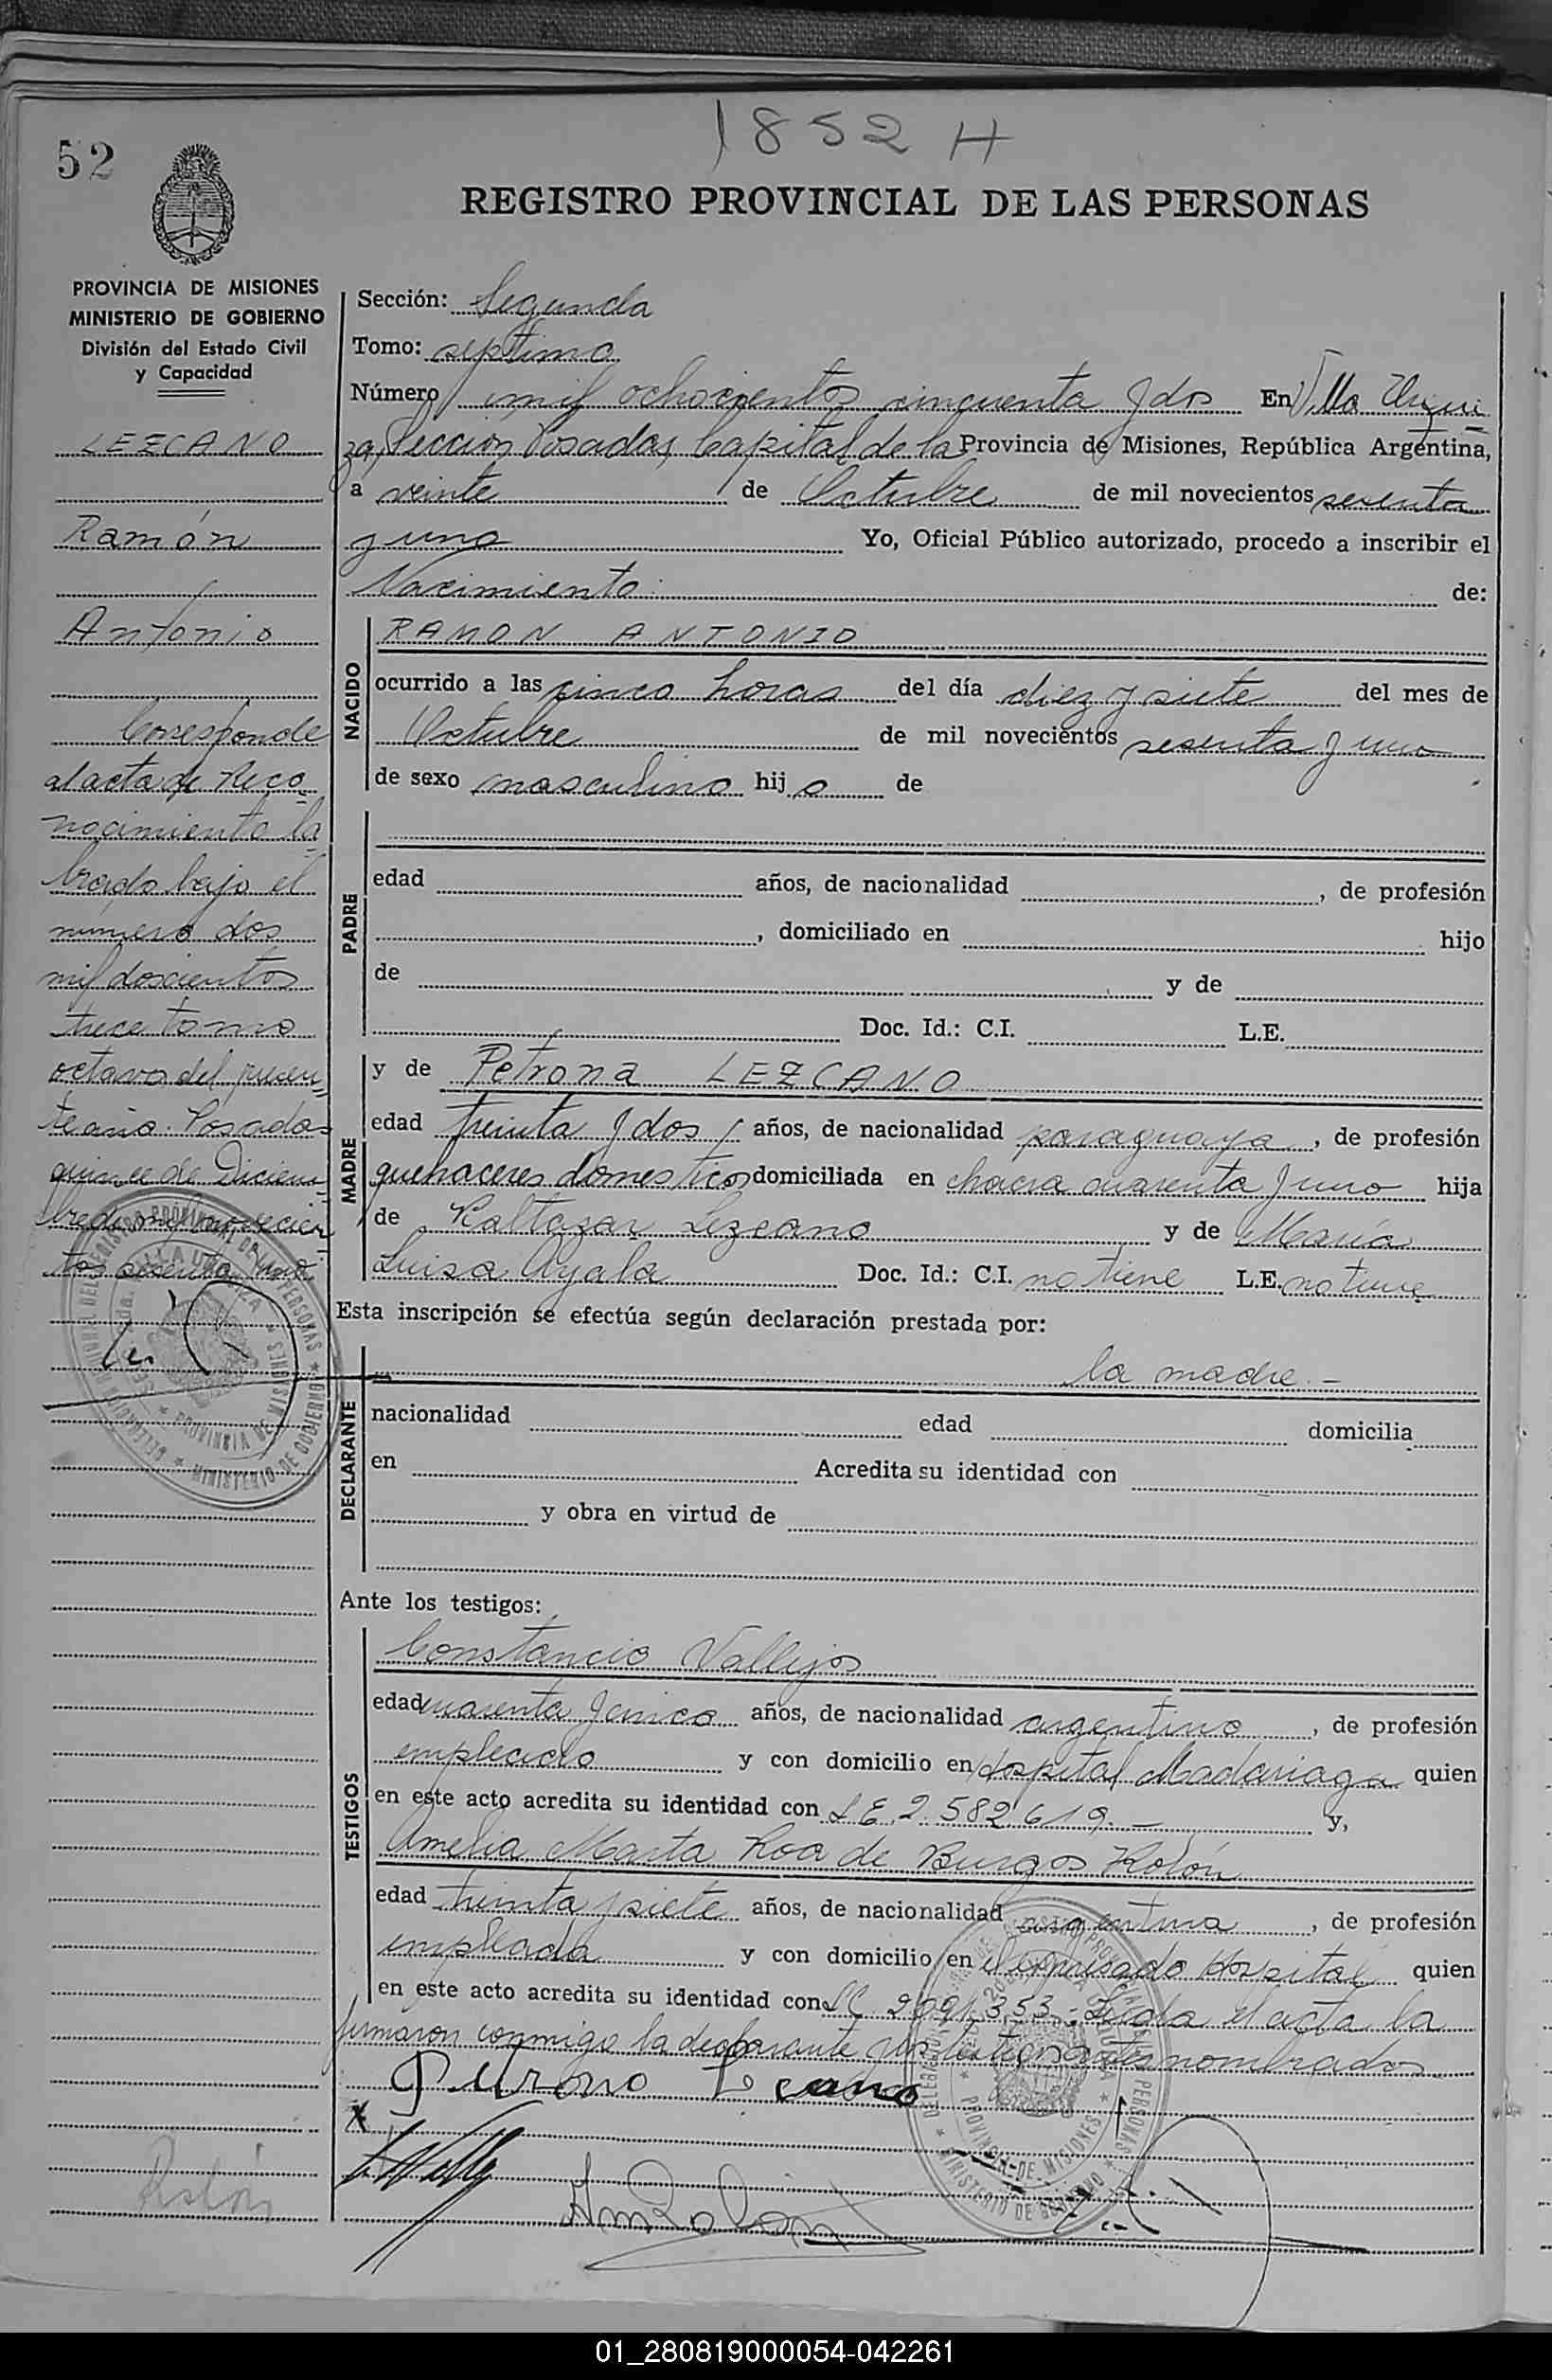 1852 H
52
REGISTRO PROVINCIAL DE LAS PERSONAS
PROVINCIA DE MISIONES
MINISTERIO DE GOBIERNO
División del Estado Civil
y Capacidad
LEZCANO
Ramón
Antonio
Corresponde
al acta de Reco
nocimiento la
brada bajo el
número dos
mil doscientos
trece tomo
octavo del presen
te año. Posadas
quince de Diciem
bre de mil novecien
tos sesenta y uno
Sección: Segunda
Tomo: septimo
Número mil ochocientos cincuenta y dos En Villa Urqui
za, Sección Posadas, Capital de la Provincia de Misiones, República Argentina,
a veinte de Octubre de mil novecientos sesenta
y uno Yo, Oficial Público autorizado, procedo a inscribir el
Nacimiento de:
NACIDO
RAMON ANTONIO
ocurrido a las cinco horas del día diez y siete del mes de
Octubre de mil novecientos sesenta y uno
de sexo masculino hij o de
PADRE
edad años, de nacionalidad , de profesión
, domiciliado en hijo
de y de
Doc. Id.: C.I. L.E.
MADRE
y de Petrona LEZCANO
edad treinta y dos años, de nacionalidad paraguaya, de profesión
quehaceres domesticos domiciliada en chacra cuarenta y uno hija
de Baltazar Lezcano y de María
Luisa Ayala Doc. Id.: C.I. no tiene L.E. no tiene
Esta inscripción se efectúa según declaración prestada por:
DECLARANTE
la madre.-
nacionalidad edad domicilia
en Acredita su identidad con
y obra en virtud de
Ante los testigos:
TESTIGOS
Constancio Vallejos
edad cuarenta y cinco años, de nacionalidad argentino, de profesión
empleado y con domicilio en Hospital Madariaga quien
en este acto acredita su identidad con L E. 2.582.619.- y,
Amelia Marta Roa de Burgos Rolón
edad treinta y siete años, de nacionalidad argentina, de profesión
empleada y con domicilio en el expresado Hospital quien
en este acto acredita su identidad con LC 2091353.- Leida el acta la
firmaron conmigo la declarante y los testigos antes nombrados
Petrona
X
Rolón
01_280819000054-042261